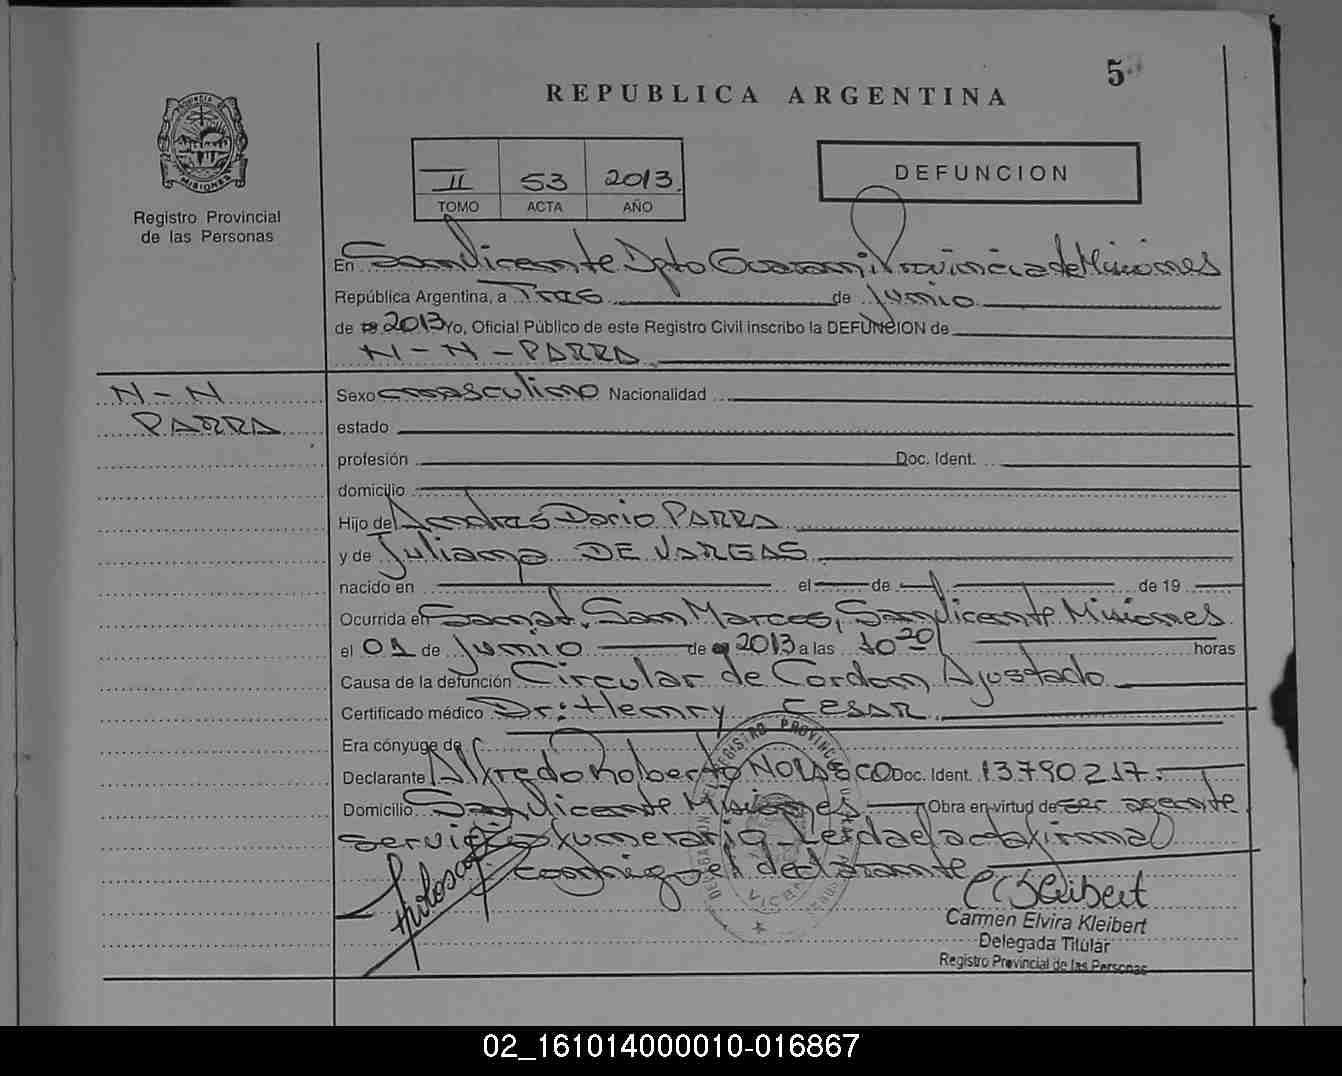 5
REPUBLICA ARGENTINA
PROVINCIA DE MISIONES
Registro Provincial
de las Personas
II 53 2013.
TOMO ACTA AÑO
DEFUNCION
En San Vicente Dpto Guarani Provincia de Misiones
República Argentina, a Tres de Junio
de 2013 Yo, Oficial Público de este Registro Civil inscribo la DEFUNCION de
N-N-PARRA
N-N
PARRA
Sexo masculino Nacionalidad
estado
profesión Doc. Ident.
domicilio
Hijo de Andres Dario PARRA
y de Juliana DE VARGAS
nacido en el de de 19
Ocurrida en Sanat. San Marcos, San Vicente Misiones
el 01 de Junio de 2013 a las 10 20 horas
Causa de la defunción Circular de Cordon Ajustado
Certificado médico Dr: Henry CESAR
Era cónyuge de
Declarante Alfredo Roberto NOLASCO Doc. Ident. 13.790.217.
Domicilio San Vicente Misiones Obra en virtud de ser agente
servicio funerario Leida el acta firma
conmigo el declarante
Carmen Elvira Kleibert
Delegada Titular
Registro Provincial de las Personas
02_161014000010-016867